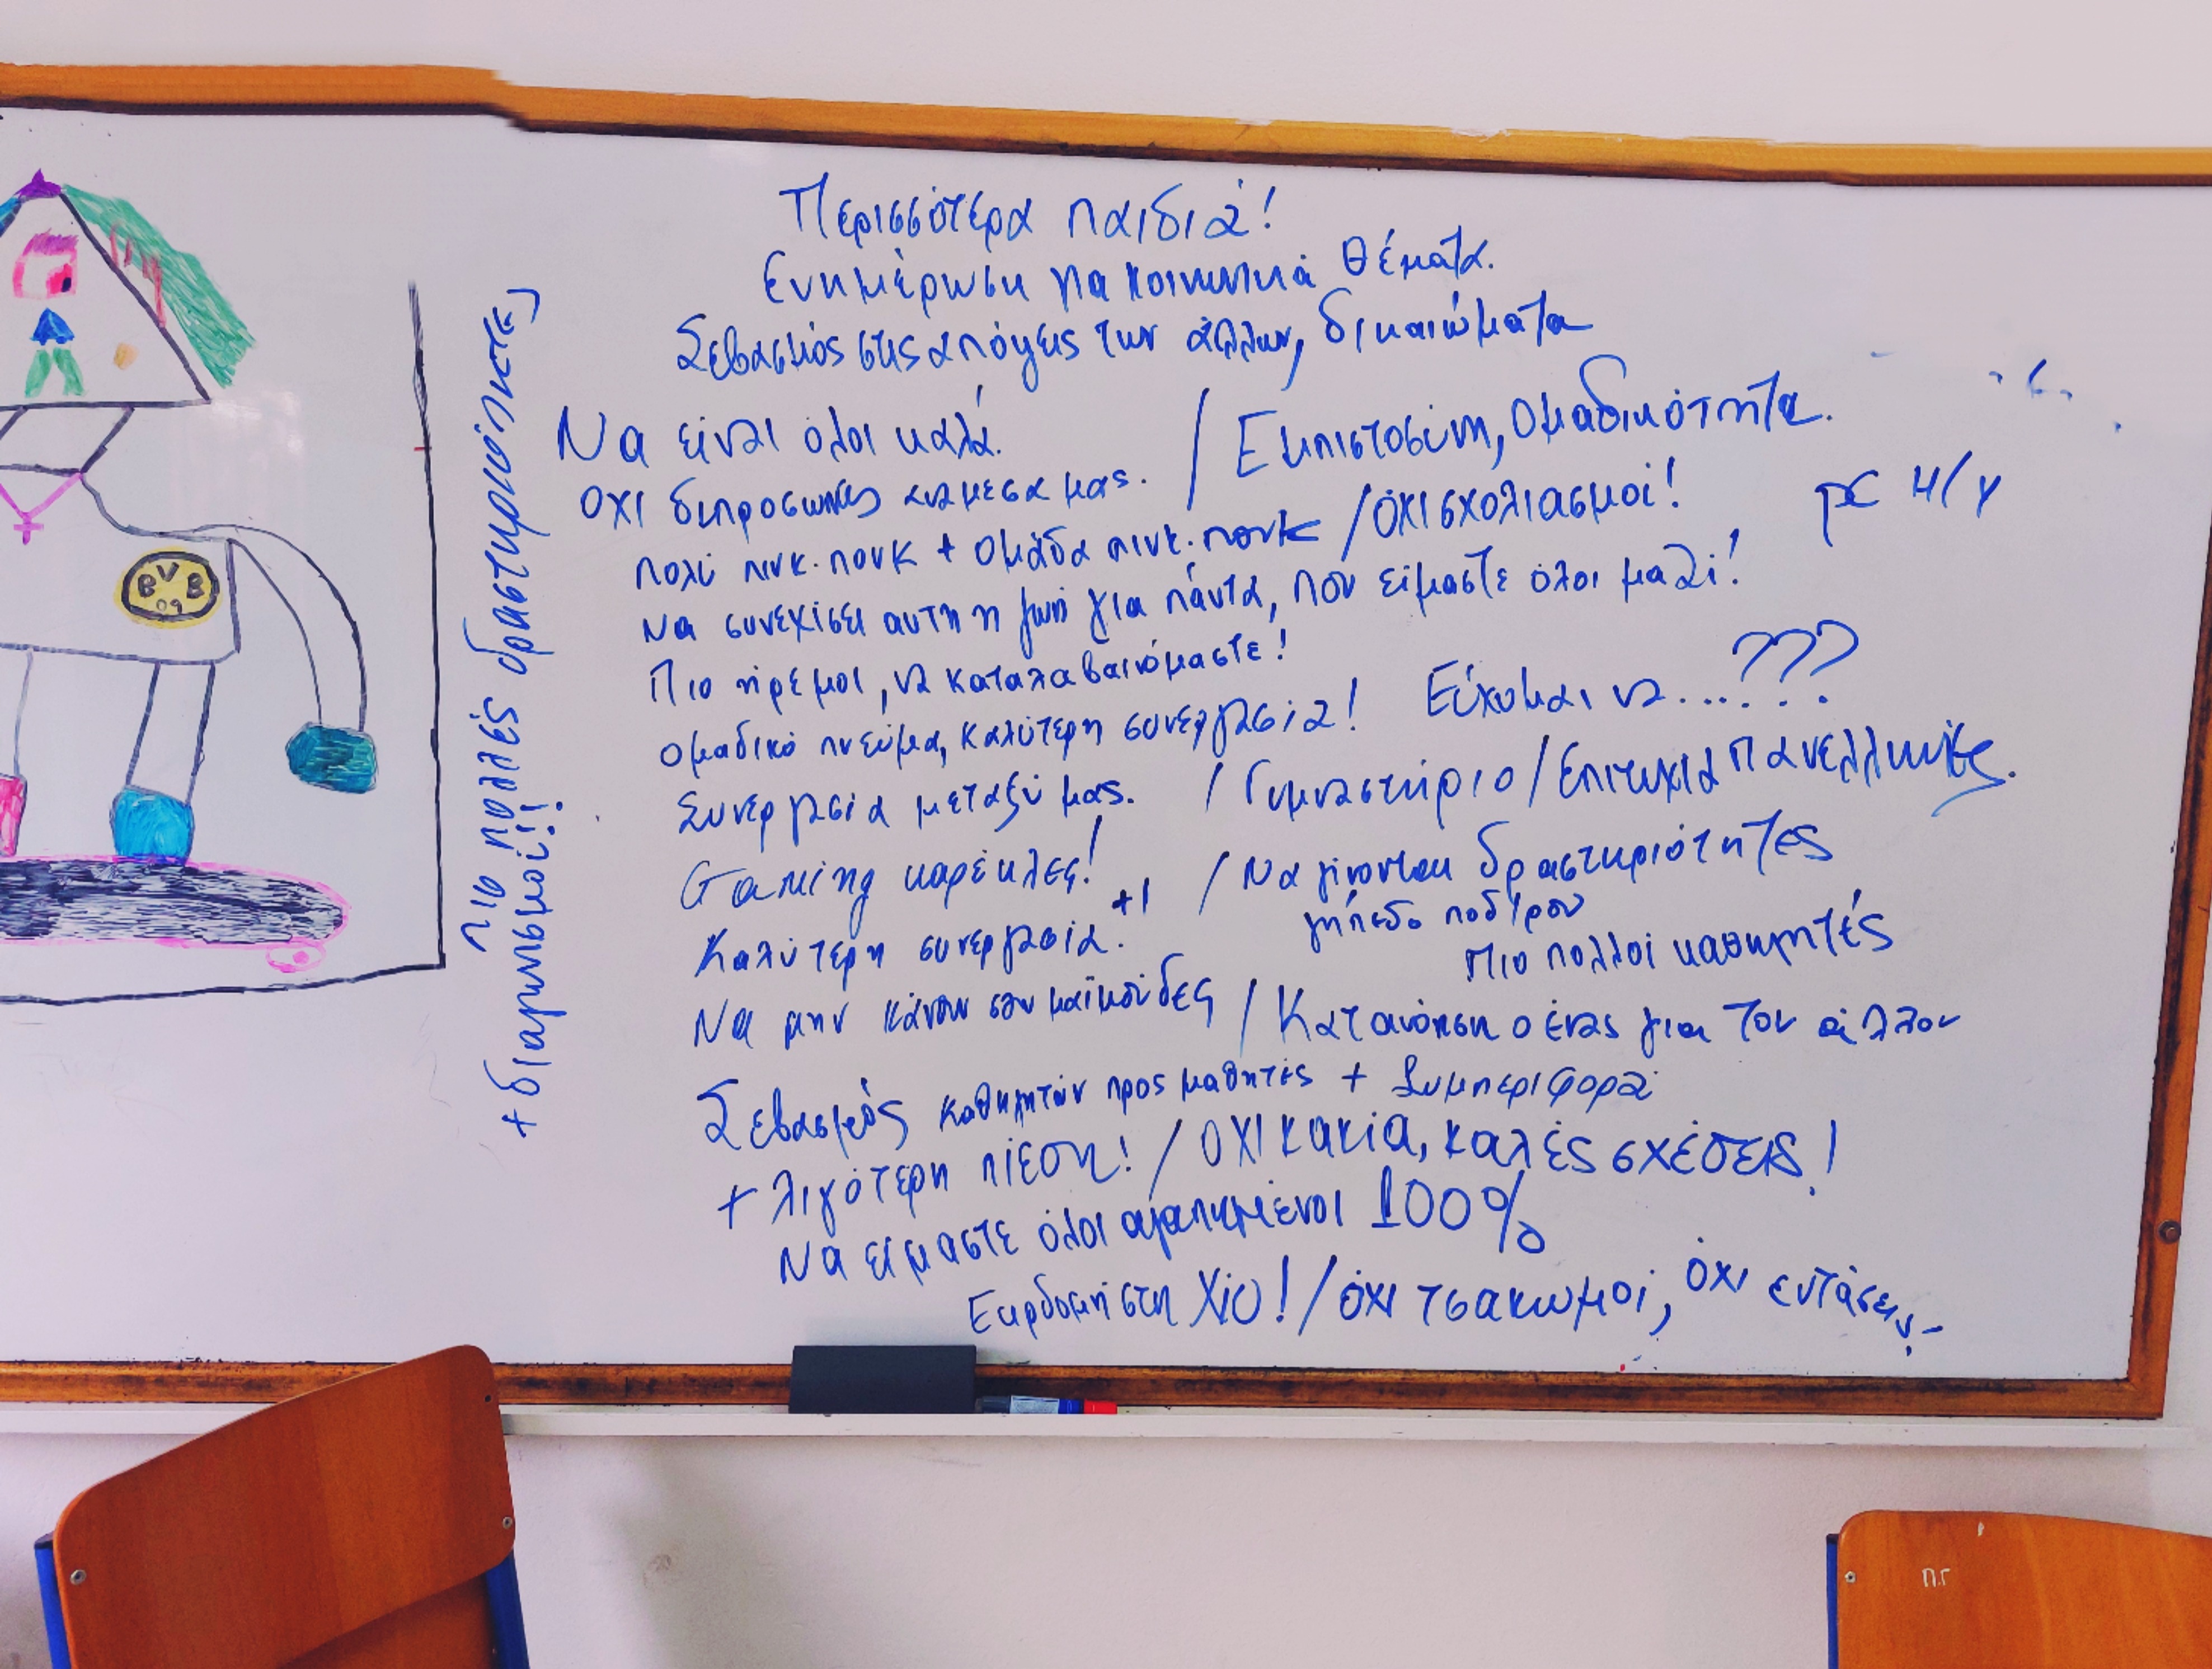 Περισσότερα παιδιά!
Ενημέρωση για κοινωνικά θέματα.
Σεβασμός στις απόψεις των άλλων, δικαιώματα
Να είναι όλοι καλά. / Εμπιστοσύνη, Ομαδικότητα.
ΟΧΙ διπροσωπίες ανάμεσα μας.
pc Η/Υ
πολύ πινκ.πονκ + ομάδα πινκ.πονκ / ΌΧΙ σχολιασμοί!
να συνεχίσει αυτή η ζωή για πάντα, που είμαστε όλοι μαζί!
Πιο ήρεμοι, να καταλαβαινόμαστε!
ομαδικό πνεύμα, καλύτερη συνεργασία! Εύχομαι να...???
Συνεργασία μεταξύ μας. / Γυμναστήριο / Επιτυχία Πανελλήνιες.
Gaming καρέκλες! / Να γίνονται δραστηριότητες
Καλύτερη συνεργασία. +1 γήπεδο ποδ/ρου
Πιο πολλοί καθηγητές
Να μην κάνουν σαν μαϊμούδες / Κατανόηση ο ένας για τον άλλον
Σεβασμός καθηγητών προς μαθητές + Συμπεριφορά
+ λιγότερη πίεση! / ΟΧΙ κακία, καλές σχέσεις!
Να είμαστε όλοι αγαπημένοι 100%
Εκρδομή στη Χίο! / όχι τσακωμοί, όχι εντάσεις
πιο πολλές δραστηριότητες
+ διαγωνισμοί!!
BVB
09
Π.Γ